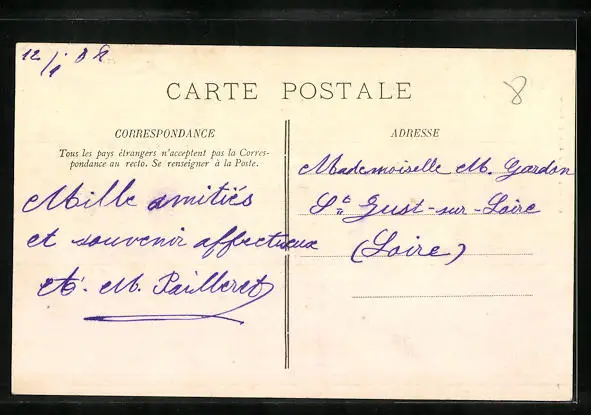 12/1 08
CARTE POSTALE
8
CORRESPONDANCE
Tous les pays étrangers n'acceptent pas la Corres-
pondance au recto. Se renseigner à la Poste.
Mille amitiés
et souvenir affectueux
M. Pailleret
ADRESSE
Mademoiselle M. Gardon
St Just-sur-Loire
(Loire)